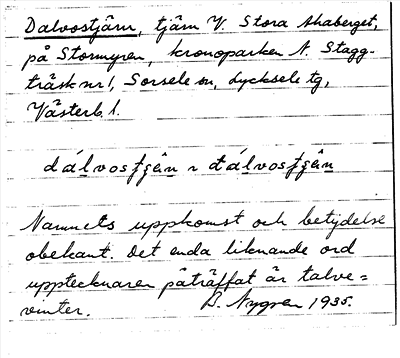 Dalvostjärn, tjärn V. Stora Ahaberget,
på Stormyren, kronoparken N. Stagg-
träsk nr 1, Sorsele sn, Lycksele tg,
Västerb. l.
Namnets uppkomst och betydelse
obekant. Det enda liknande ord
upptecknaren påträffat är talve=
vinter. B. Nygren 1935.